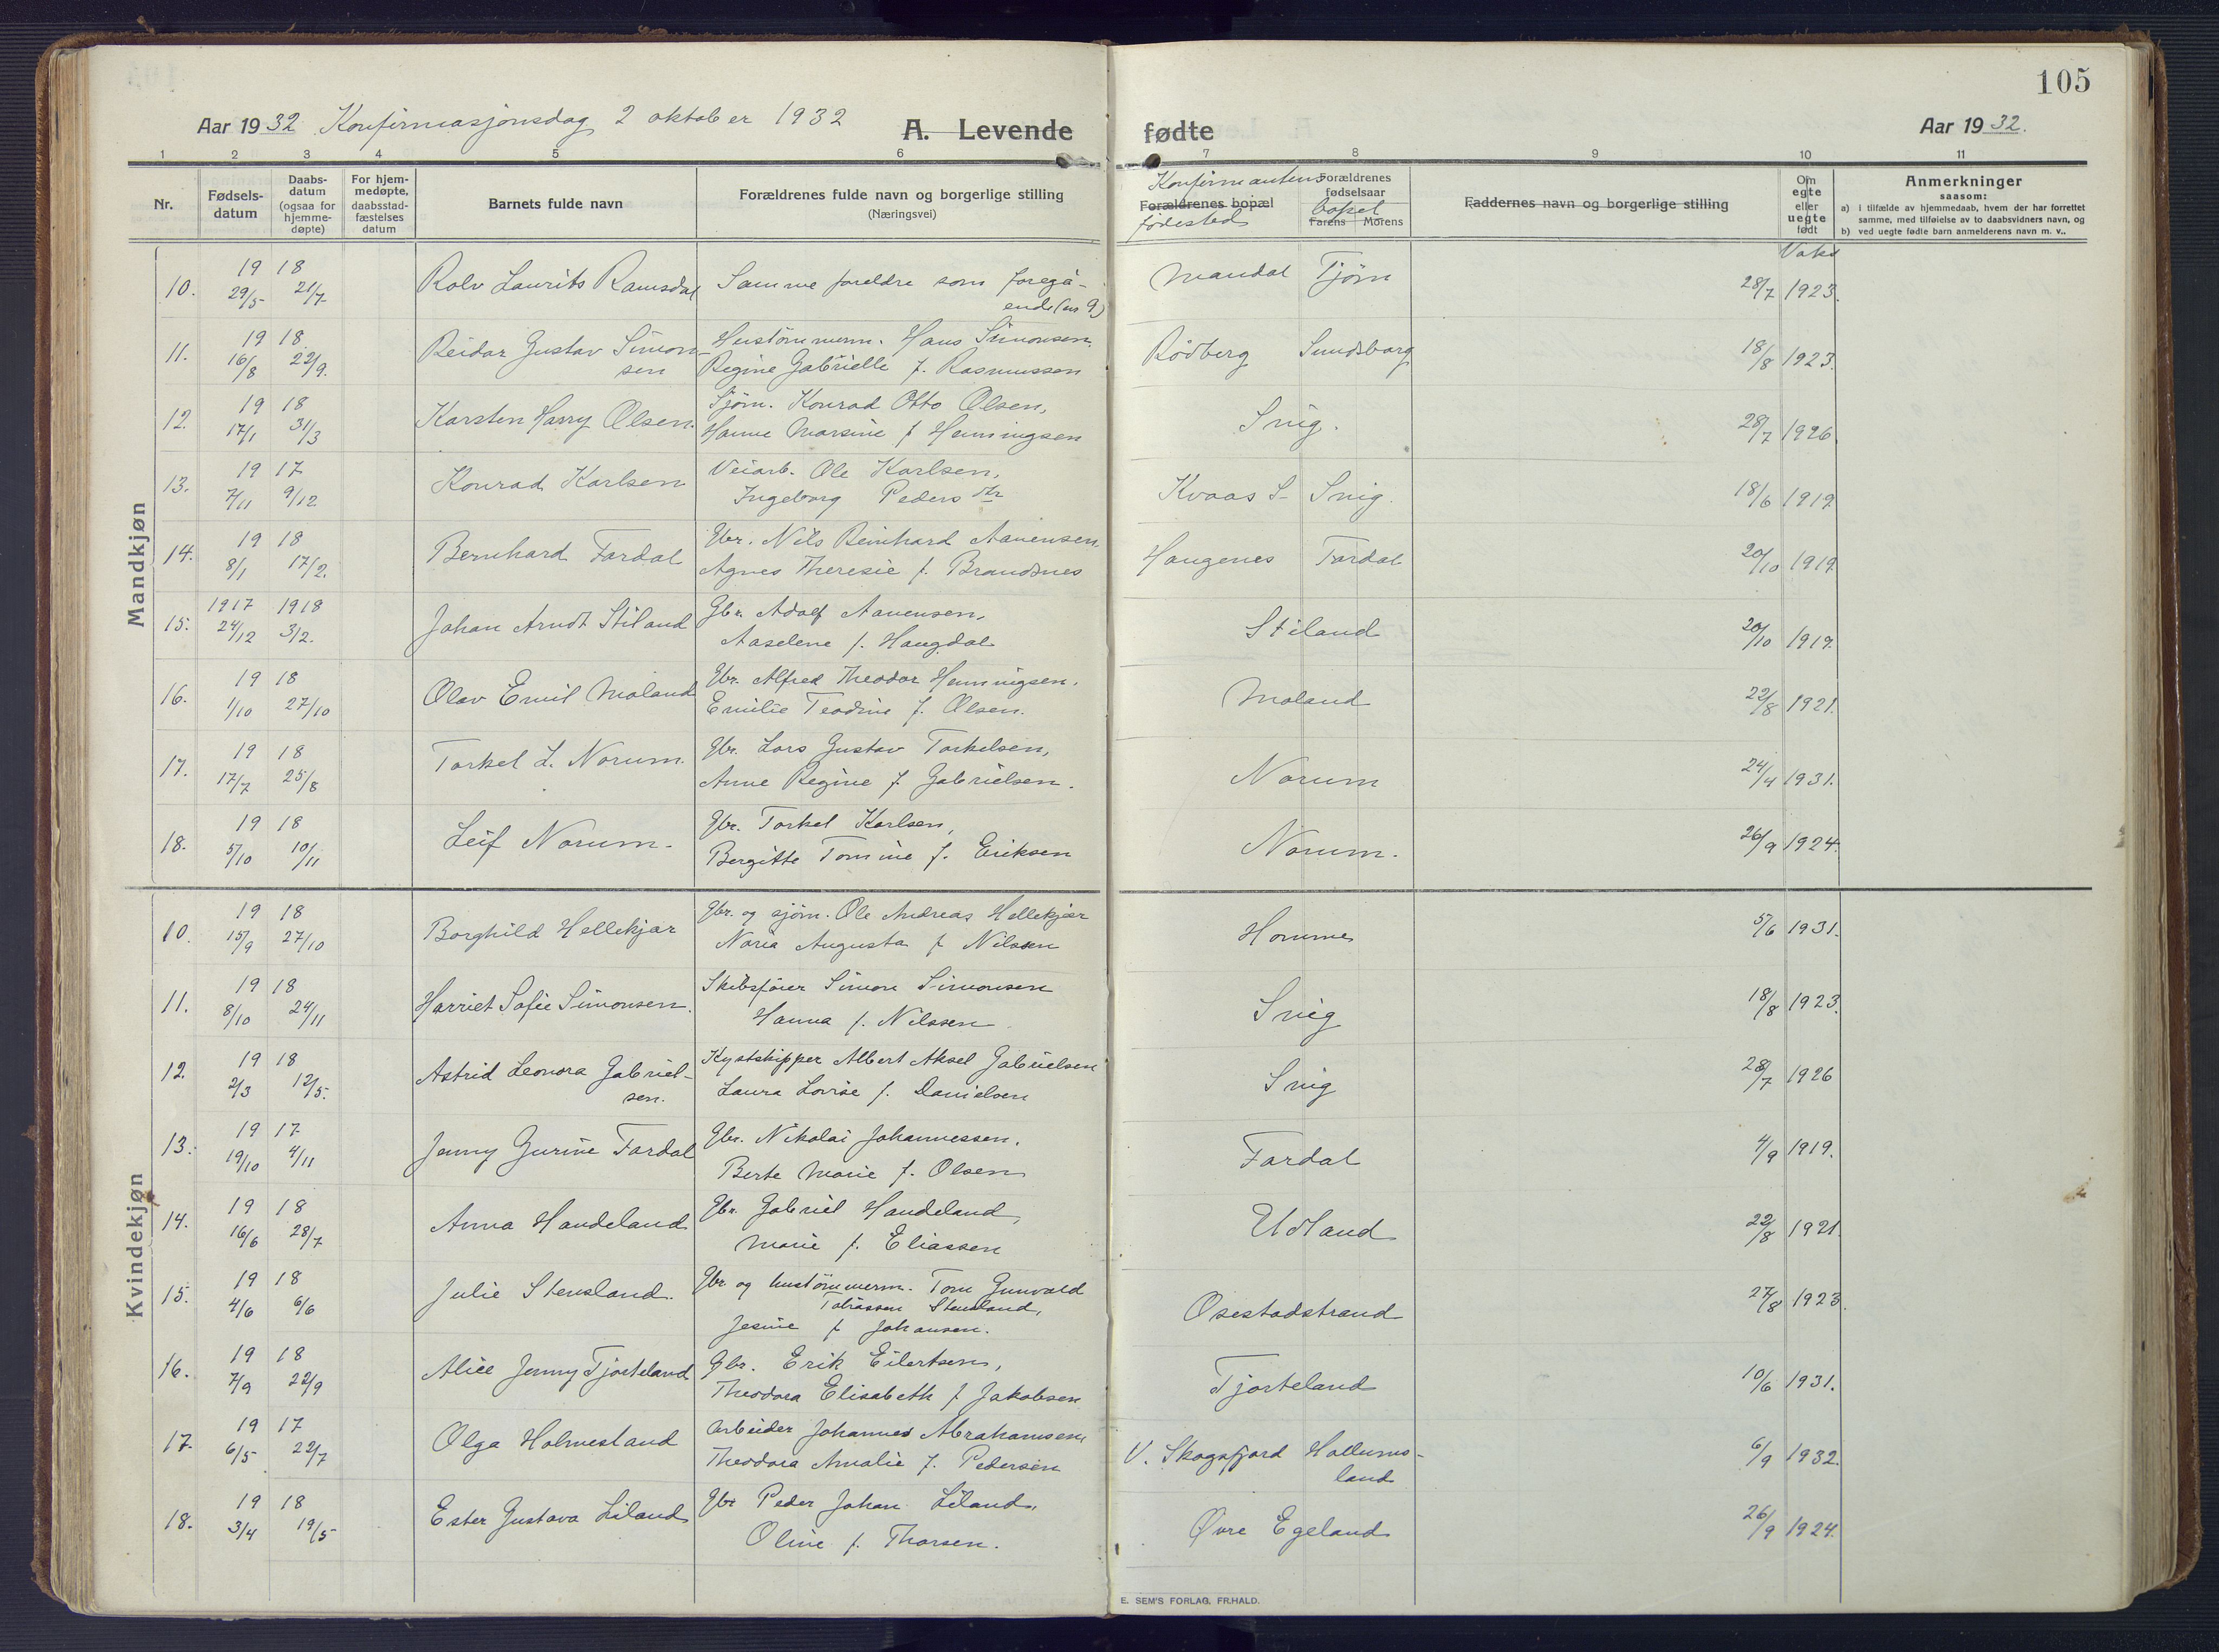 105
Aar 1932 Konfirmasjonsdag 2 oktober 1932 A. Levende fødte Aar 1932.
1 2 3 4 5 6 7 8 9 10 11
Nr. Fødselsdatum Daabsdatum (ogsaa for hjemmedøpte) For hjemmedøpte, daabsstadfæstelses datum Barnets fulde navn Forældrenes fulde navn og borgerlige stilling (Næringsvei) Konfirmantens Forældrenes bopæl fødested Forældrenes fødselsaar bopel Farens Morens Faddernes navn og borgerlige stilling Om egte eller uegte født Anmerkninger saasom:
a) i tilfælde av hjemmedaab, hvem der har forrettet samme, med tilføielse av to daabsvidners navn, og
b) ved uegte fødte barn anmelderens navn m. v..
Vaks
Mandkjøn
10. 19 18 29/5 21/7 Rolv Laurits Ramsdal Samme foreldre som foregå-
ende (nr 9) Mandal Tjøm 28/7 1923.
11. 19 18 16/8 22/9. Reidar Gustav Simon-
sen Hustømmerm. Hans Simonsen,
Regine Gabrielle f. Rasmussen Rødberg Sundsborg 18/8 1923.
12. 19 18 17/1 31/3 Karsten Harry Olsen. Sjøm. Konrad Otto Olsen,
Hanne Marsine f Henningsen Snig. 28/7 1926
13. 19 17 7/11 9/12 Konrad Karlsen Veiarb. Ole Karlsen,
Ingeborg Peders dtr Kvaas S- Snig. 18/6 1919
14. 19 18 8/1 17/2. Bernhard Fardal Gbr. Nils Reinhard Aanensen
Agnes Theresie f. Brandsnes Haugenes Fardal 20/10 1919
15. 1917 1918 24/12 3/2. Johan Arndt Stiland Gbr. Adolf Aanensen,
Aaselene f. Haugdal Stiland 20/10 1919.
16. 19 18 1/10 27/10 Olav Emil Moland Gbr. Alfred Theodor Henningsen,
Emilie Teodine f. Olsen. Moland 22/8 1921.
17. 19 18 17/7 25/8 Torkel L. Norum. Gbr. Lars Gustav Torkelsen,
Anne Regine f Gabrielsen. Norum 24/4 1931.
18. 19 18 5/10 10/11 Leif Norum. Gbr. Torkel Karlsen,
Bergitte Tomine f. Eriksen Norum. 26/9 1924.
Kvindekjøn
10. 19 18 15/9 27/10 Borghild Hellekjær Gbr. og sjøm. Ole Andreas Hellekjær
Noria Augusta f Nilssen Homme 5/6 1931.
11. 19 18 8/10 24/11 Harriet Sofie Simonsen. Skibsfører Simon Simonsen
Hanna f. Nilssen Snig 18/8 1923.
12. 19 18 2/3 12/5. Astrid Leonora Gabriel-
sen. Kystskipper Albert Aksel Gabrielsen
Laura Lovise f. Danielsen Snig 28/7 1926
13. 19 17 19/10 4/11 Jenny Gurine Fardal Gbr. Nikolai Johannessen.
Berte Marie f. Olsen Fardal 4/9 1919.
14. 19 18 16/6 28/7 Anna Haudeland Gbr. Gabriel Haudeland,
Marie f. Eliassen Udland 22/8 1921
15. 19 18 4/6 6/6 Julie Stensland. Gbr. og hustømmerm. Tom Gunvald
Tobiassen Stensland,
Jesine f Johansen. Osestadstrand 27/8 1923
16. 19 18 7/9 22/9 Alice Jenny Tjorteland Gbr. Erik Eilertsen,
Theodora Elisabeth f Jakobsen Tjorteland 10/6 1931.
17. 19 17 6/5 22/7 Olga Holmesland Arbeider Johannes Abrahamsen,
Theodora Amalie f. Pedersen V. Skogsfjord Hollums-
land 6/9 1932.
18. 19 18 3/4 19/5 Ester Gustava Liland Gbr Peder Johan Liland,
Oline f. Thorsen. Øvre Egeland 26/9 1924.
E. SEM'S FORLAG. FR.HALD.